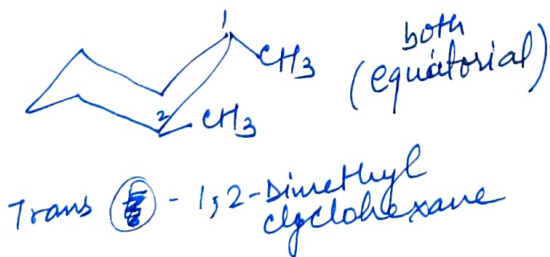 1
CH3
both
(equatorial)
2
CH3
Trans - 1,2-Dimethyl
clyclohexane